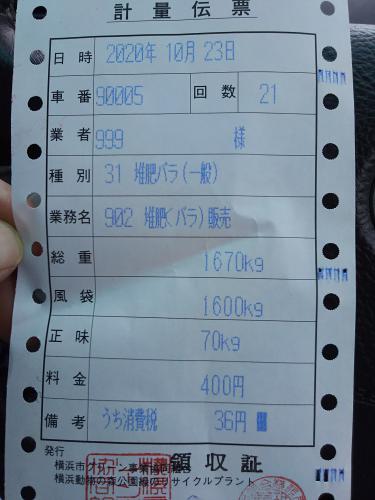 計量伝票
日時 2020年 10月 23日
車番 90005 回数 21
業者 999 様
種別 31 堆肥バラ(一般)
業務名 902 堆肥(バラ)販売
総重 1670kg
風袋 1600kg
正味 70kg
料金 400円
備考 うち消費税 36円
発行
横浜市グリーン事業協同組合 領収証
横浜動物の森公園緑のリサイクルプラント